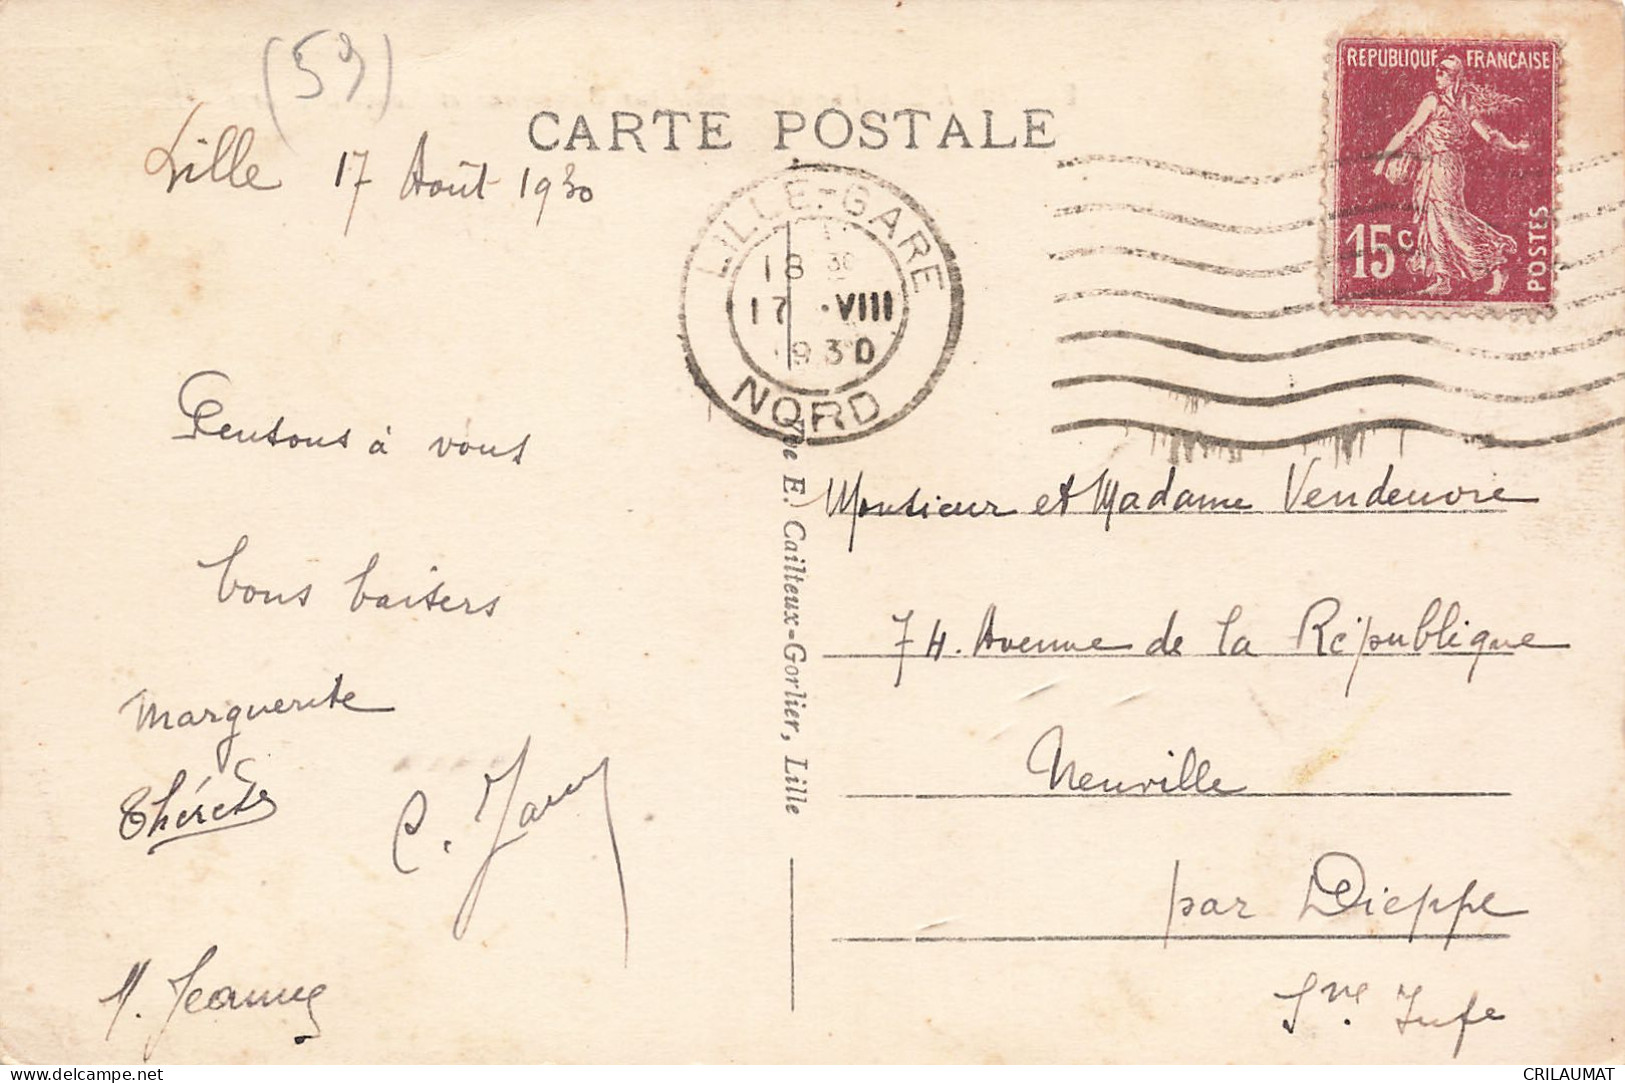 (59)
CARTE POSTALE
Lille 17 Août 1930
REPUBLIQUE FRANÇAISE
15c
POSTES
LILLE-GARE
18 30
17 .VIII
1930
NORD
Pensons à vous
bons baisers
Marguerite
Thérèse
C.
M. Jeanne
Pe E. Cailteux-Gorlier, Lille
Monsieur et Madame Vendeuvre
74. Avenue de la République
Neuville
par Dieppe
Sne Infe
www.delcampe.net
CRILAUMAT